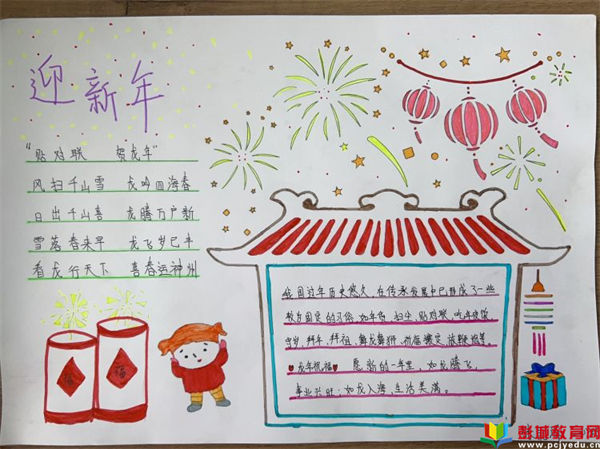 迎新年
"贴对联 贺龙年"
风扫千山雪 龙吟四海春
日出千山喜 龙腾万户新
雪落春来早 龙飞岁已丰
看龙行天下 喜春运神州
我国过年历史悠久,在传承发展中已形成了一些
较为固定的习俗,如年货、扫尘、贴对联、吃年夜饭、
守岁、拜年、拜祖、舞龙舞狮、祈福攘灾、放鞭炮等。
龙年祝福 愿新的一年里,如龙腾飞,
事业兴旺;如龙入海,生活美满。
福
福
彭城教育网
www.pcjyedu.cn